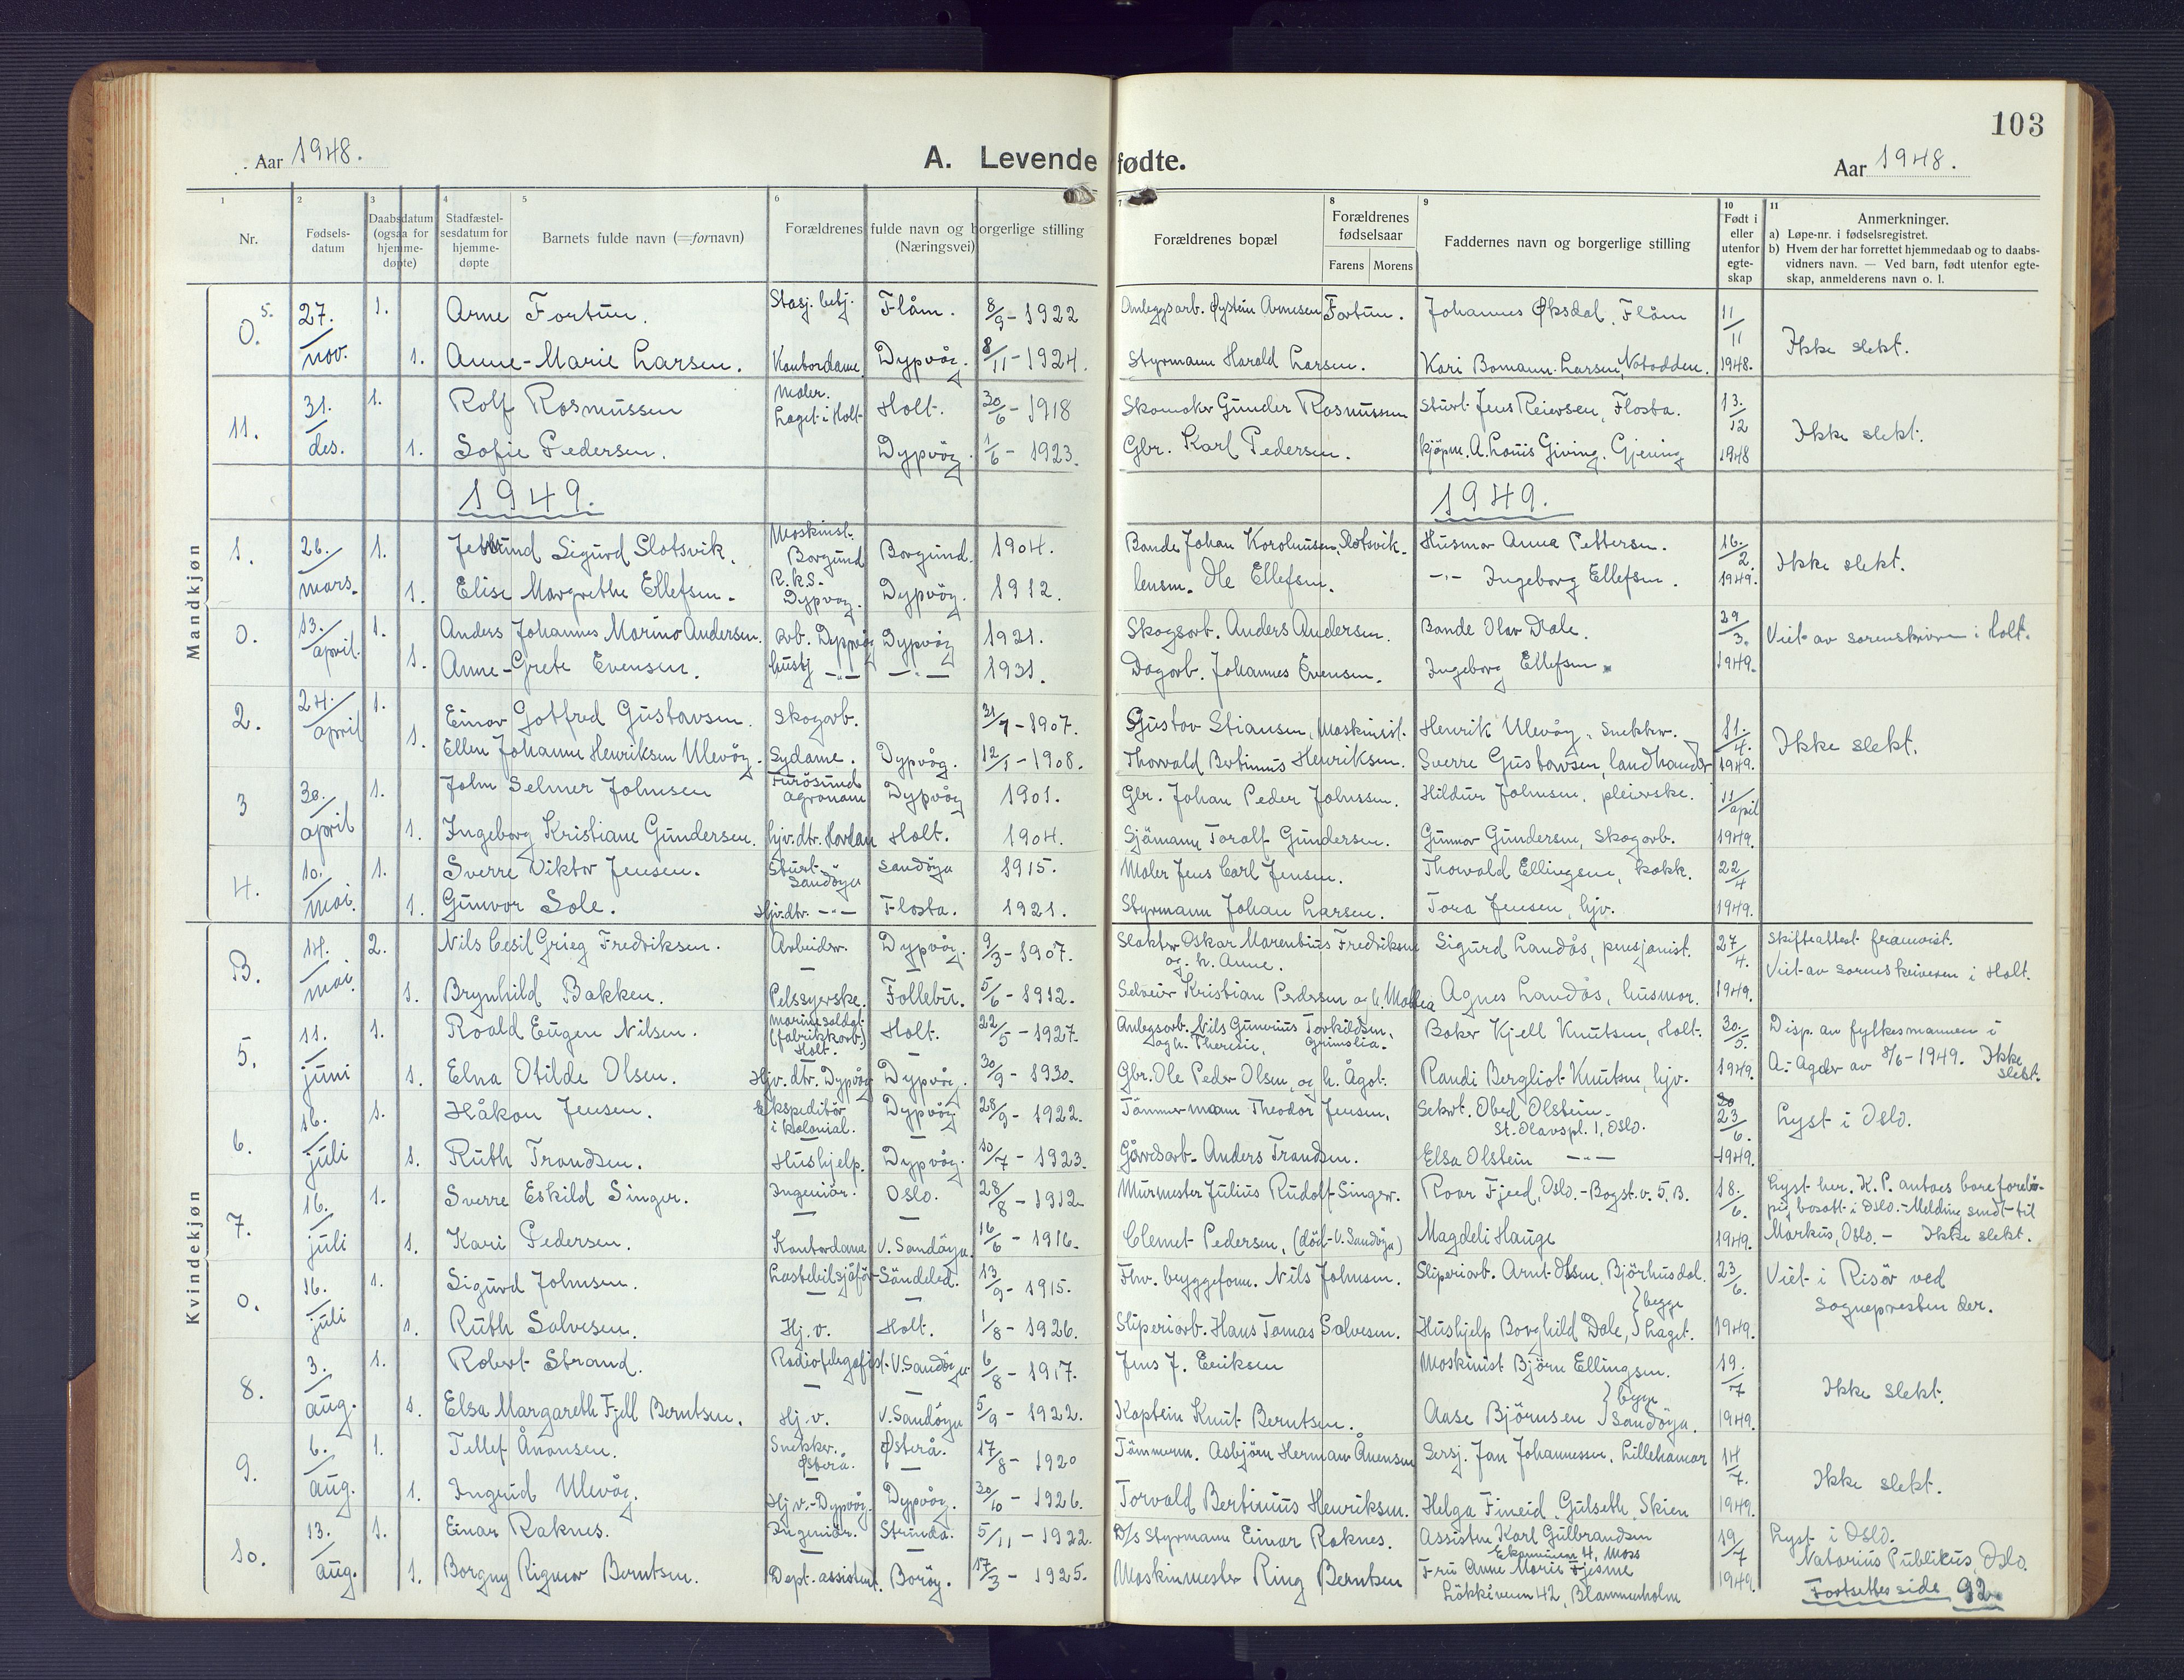 103
Aar 1948.
A. Levende fødte.
Aar 1948.
1 2 3 4 5 6 7 8 9 10 11
Nr.
Fødselsdatum
Daabsdatum (ogsaa for hjemmedøpte)
Stadfæstelsesdatum for hjemmedøpte
Barnets fulde navn (=fornavn)
Forældrenes fulde navn og borgerlige stilling (Næringsvei)
Forældrenes bopæl
Forældrenes fødselsaar
Farens Morens
Faddernes navn og borgerlige stilling
Født i eller utenfor egteskap
Anmerkninger.
a) Løpe-nr. i fødselsregistret.
b) Hvem der har forrettet hjemmedaab og to daabsvidners navn. — Ved barn, født utenfor egteskap, anmelderens navn o. l.
Mandkjøn
0. 5. 27. 1. Arne Fortun. Stasj. betj. Flåm. 8/9 - 1922 Anleggsarb. Øystein Arnesen Fortun. Johannes Øksdal, Flåm 11/11
nov. 1. Anne-Marie Larsen. Kontordame Dypvåg. 8/11 - 1924. Styrmann Harald Larsen. Kari Bomann-Larsen, Notodden. 1948. Ikke slekt.
11. 31. 1. Rolf Rasmussen Maler. Laget i Holt Holt. 30/6 - 1918 Skomaker Gunder Rasmussen Stuert Jens Reiersen, Flosta. 13./12
des. 1. Sofie Pedersen. Dypvåg. 1/6 - 1923. Gbr. Karl Pedersen. kjøpm. A. Louis Giving. Gjeving 1948 Ikke slekt.
1949. 1949.
1. 26. 1. Sigurd Slotsvik. Maskinst. Borgund Borgund. 1904. Bonde Johan Karolusen, Slotsvik. Husmor Anna Pettersen. 16./2.
mars. 1. Elise Margrethe Ellefsen. R.k.s. Dypvåg. Dypvåg. 1912. lensm. Ole Ellefsen. -"- Ingeborg Ellefsen. 1949. Ikke slekt.
0. 13. 1. Anders Johannes Marino Andersen. arb. Dypvåg Dypvåg 1921. Skogsarb. Anders Andersen. Bonde Olav Dale. 29/3.
april. 1. Anne-Grete Evensen. hustj -"- -"- 1931. Dagarb. Johannes Evensen. Ingeborg Ellefsen. 1949. Viet av sorenskriveren i Holt.
2. 24. 1. Einar Gotfred Gustavsen. Skogarb. 31/7 - 1907. Gustav Stiansen, Maskinist. Henrik Ulevåg, snekker. 11./4.
april 1. Ellen Johanne Henriksen Ulevåg. Sydame. Dypvåg. 12/1 - 1908. Thorvald Bertinius Henriksen. Sverre Gustavsen, landhandler 1949. Ikke slekt.
3 30. 1. John Selmer Johnsen Furøsund agronom Dypvåg 1901. Gbr. Johan Peder Johnssen. Hildur Johnsen, pleierske. 11/april
april 1. Ingeborg Kristiane Gundersen. hjv. dtr. Hovdan Holt. 1904. Sjømann Toralf Gundersen. Gunnar Gundersen, skogarb. 1949.
4. 10. 1. Sverre Viktor Jensen. Stuert Sandøya Sandøya 1915. Maler Jens Carl Jensen. Thorvald Ellingsen, kokk. 22/4
mai. 1. Gunvor Sole. Hjv. dtr. -"- Flosta. 1921. Styrmann Johan Larsen. Tora Jensen, hjv. 1949.
Kvindekjøn
B. 14. 2. Nils Cesil Grieg Fredriksen. Arbeider. Dypvåg. 9/3 - 1907. Slakter Oskar Marentius Fredriksen og h. Anne. Sigurd Landås, pensjonist. 27/4. Skifteattest framvist.
mai 1. Brynhild Bakken. Pelssyerske. Follebu. 5/6 - 1912. Selveier Kristian Pedersen og h. Agnes Landås, husmor. 1949. Viet av sorenskriveren i Holt.
5. 11. 1. Roald Eugen Nilsen. Marinesoldat (fabrikkarb.) Holt. Holt. 22/5 - 1927. Anlegsarb. Nils Gunvius Torkildsen, og h. Theresie, Grimslia. Baker Kjell Knutsen, Holt. 30./5. Disp. av fylkesmannen i
juni 1. Elna Otilde Olsen. Hjv. dtr. Dypvåg Dypvåg. 30/9 - 1930. Gbr. Ole Peder Olsen, og h. Ågot. Randi Bergliot Knutsen, hjv. 1949. A.-Agder av 8/6 - 1949. Ikke slekt.
6. 16. 1. Håkon Jensen. Ekspeditør i kolonial. Dypvåg 28/9 - 1922. Tømmermann Theodor Jensen. Sekret. Obed Olstein. St. Olavspl. 1, Oslo. 23/6. Lyst i Oslo.
juli 1. Ruth Trondsen. Hushjelp. Dypvåg. 10/7 - 1923. Gårdsarb. Anders Trondsen. Elsa Olstein -"- 1949.
7. 16. 1. Sverre Eskild Singer. Ingeniør. Oslo. 28/8 - 1912. Murmester Julius Rudolf Singer. Roar Fjeld, Oslo. - Bogst. v. 5, B. 18./6. Lyst her. K. P. antaes bare foreløpig bosatt i Oslo. - Melding sendt til
juli 1. Kari Pedersen. Kontordame V. Sandøya. 16/6 - 1916. Clemet Pedersen, (død - V. Sandøya) Magdeli Hauge 1949. Markus, Oslo. - Ikke slekt.
0. 16. 1. Sigurd Johnsen. Lastebilsjåfør Søndeled. 13/9 - 1915. Fhv. byggeform. Nils Johnsen. Sliperiarb. Arnt Olsen, Bjørhusdal. 23/6. Viet i Risør ved
juli 1. Ruth Salvesen. Hj. v. Holt. 1/8 - 1926. Sliperiarb. Hans Tomas Salvesen. Hushjelp Borghild Dale, } begge Laget. 1949. sognepresten der.
8. 3. 1. Robert Strand. Radiotelegrafist. V. Sandøya 6/8 - 1917. Jens J. Eriksen Maskinist Bjørn Ellingsen. 19./7
aug. 1. Elsa Margareth Fjell Berntsen. Hj. v. V. Sandøya 5/9 - 1922. Kaptein Knut Berntsen. Aase Bjørnsen } begge Sandøya. 1949. Ikke slekt.
9. 6. 1. Tellef Ånonsen. Snekker. Østerå. Østerå. 17/8 - 1920 Tømmerm. Asbjørn Herman Ånonsen Sersj. Jan Johannessen, Lillehamar 14/7.
aug. 1. Ingrid Ulevåg. Hj. v. - Dypvåg. Dypvåg. 30/10 - 1926. Torvald Bertinius Henriksen. Helga Fineid, Gulseth, Skien 1949. Ikke slekt.
10. 13. 1. Einar Raknes. Ingeniør. Strinda. 5/11 - 1922. D/s Styrmann Einar Raknes. Assistent Karl Gulbrandsen 4, Moss 19/7 Lyst i Oslo.
aug. 1. Borgny Rigmor Berntsen. Dept. assistent. Borøy. 17/3 - 1925. Maskinmester Ring Berntsen Fru Anne Marie Fjesme Løkkeveien 42, Blommenholm 1949. Notarius Publikus, Oslo.
Fortsettes side 92.